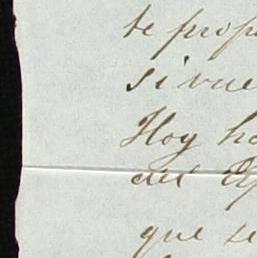 te prop
si vue
Hoy ha
del
que se